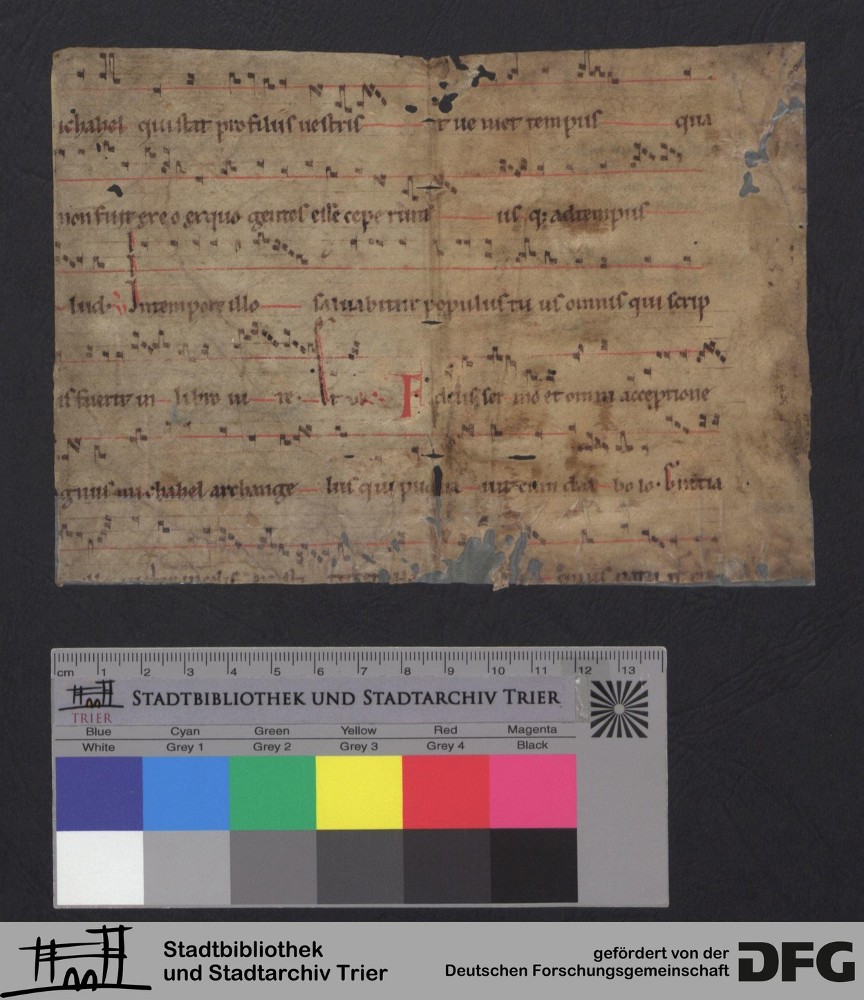 ichahel qui stat pro filiis uestris et ue niet tempus qua
non fuit ex eo ex quo gentes esse ceperunt us q; ad tempus
lud. In tempore illo saluabitur populus tu us omnis qui scrip
fuerit in libro ui te.
Fidelis ser mo et omni acceptione
michahel archange lus qui pugna uit cum dia bo lo.
cm 1 2 3 4 5 6 7 8 9 10 11 12 13
TRIER
STADTBIBLIOTHEK UND STADTARCHIV TRIER
Blue Cyan Green Yellow Red Magenta
White Grey 1 Grey 2 Grey 3 Grey 4 Black
Stadtbibliothek
und Stadtarchiv Trier
gefördert von der
Deutschen Forschungsgemeinschaft
DFG